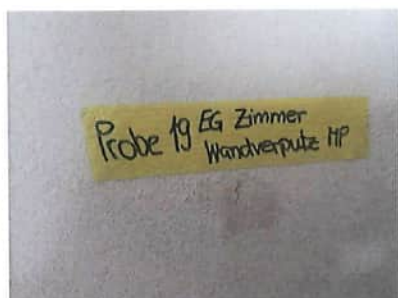 Probe 19 EG Zimmer
Wandverputz MP